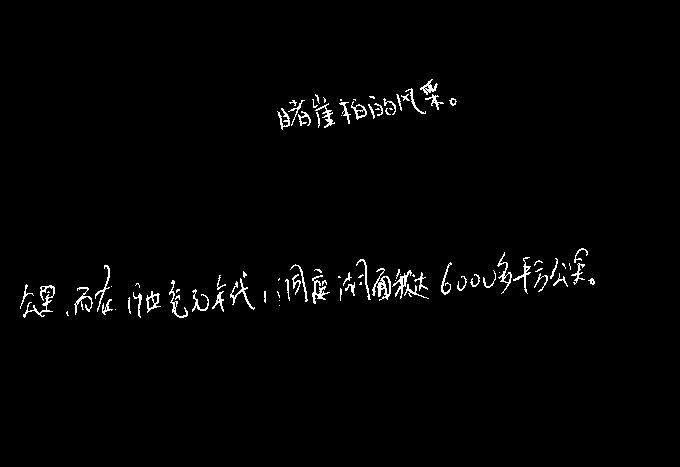 睹崖柏的风采。
公里,而在19世纪30年代,洞庭湖面积达6000多平方公里。